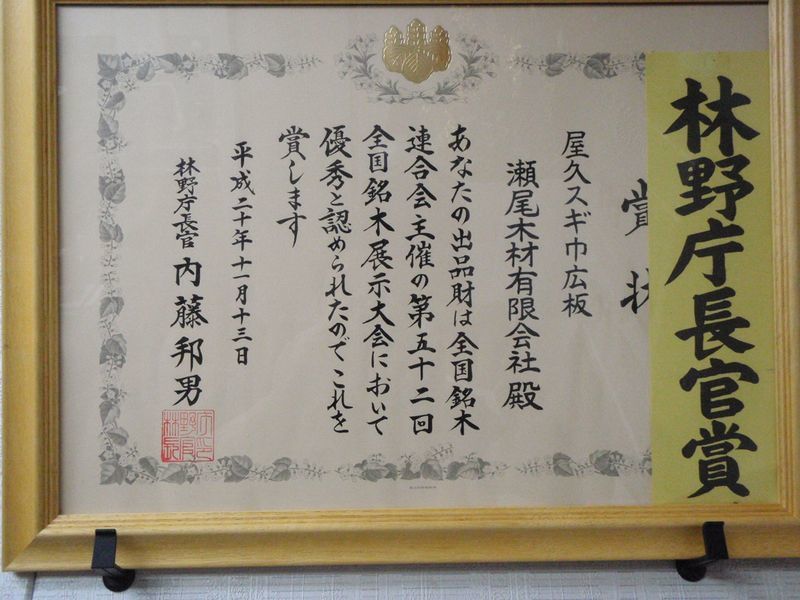 林野庁長官賞
賞状
屋久スギ巾広板
瀬尾木材有限会社 殿
あなたの出品財は全国銘木
連合会主催の第五十二回
全国銘木展示大会において
優秀と認められたのでこれを
賞します
平成二十年十一月十三日
林野庁長官 内藤邦男